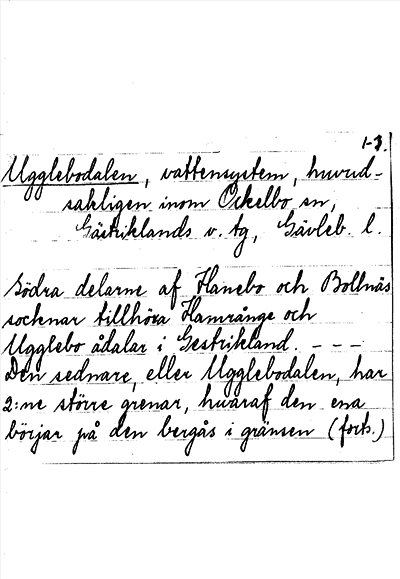 1-3.
Ugglebodalen, vattensystem, huvud-
sakligen inom Ockelbo sn,
Gästriklands v. tg, Gävleb. l.
Södra delarne af Hanebo och Bollnäs
socknar tillhöra Hamrånge och
Ugglebo ådalar i Gestrikland. - - -
Den sednare, eller Ugglebodalen, har
2:ne större grenar, hvaraf den ena
börjar på den bergås i gränsen (forts.)